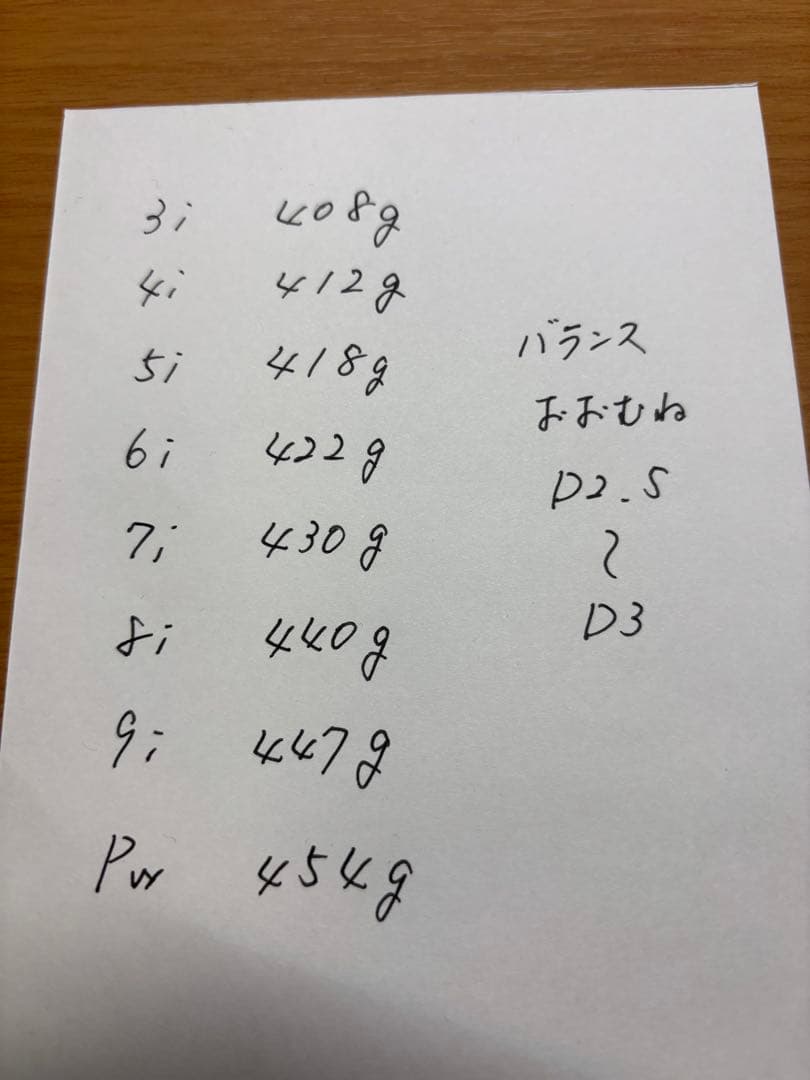 3i 408g
4i 412g
5i 418g
6i 422g
7i 430g
8i 440g
9i 447g
Pw 454g
バランス
おおむね
D2.5
〜
D3